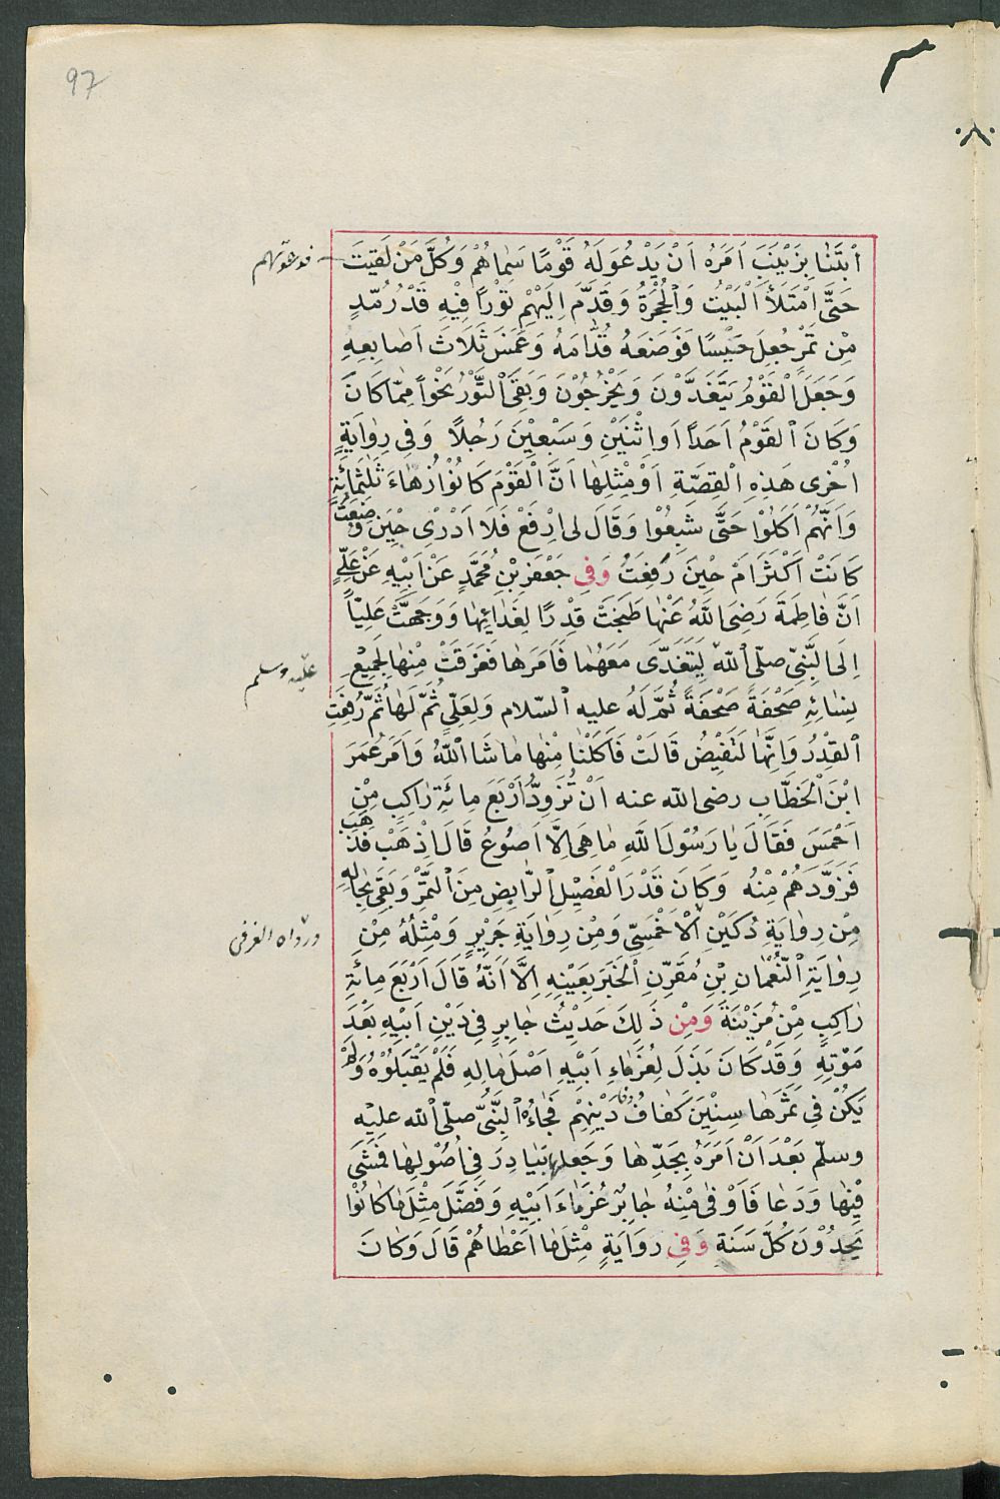 97
اَبْتَنٰا بِزَيْنَبَ اَمَرَهُ اَنْ يَدْعُوَلَهُ قَوْمًا سَمَاهُمْ وَكُلَّ مَنْ لَقِيَتَ
فدعوتهم
حَتَّى امْتَلَأَ الْبَيْتُ وَالْحُجْرَةُ وَقَدَّمَ اِلَيْهِمْ تَوْرًا فِيْهِ قَدْرُ مُدٍّ
مِنْ تَمْرٍ جُعِلَ حَيْسًا فَوَضَعَهُ قُدَّامَهُ وَغَمَسَ ثَلَاثَ اَصَابِعِهِ
وَجَعَلَ الْقَوْمُ يَتَغَدَّوْنَ وَيَخْرُجُوْنَ وَبَقِيَ التَّوْرُ نَحْوًا مِمَّا كَانَ
وَكَانَ الْقَوْمُ اَحَدًا اَوِ اثْنَيْنِ وَسَبْعِيْنَ رَجُلًا وَفِي رِوَايَةٍ
اُخْرٰى هَذِهِ الْقِصَّةِ اَوْ مِثْلِهَا اَنَّ الْقَوْمَ كَانُوْا زُهَاءَ ثَلٰثَمِائَةٍ
وَاَنَّهُمْ اَكَلُوْا حَتَّى شَبِعُوْا وَقَالَ لِى ارْفَعْ فَلَا اَدْرِى حِيْنَ وُضِعَتْ
كَانَتْ اَكْثَرَ اَمْ حِيْنَ رُفِعَتْ وَفِي جَعْفَرِ بْنِ مُحَمَّدٍ عَنْ اَبِيْهِ عَنْ عَلِيٍّ
اَنَّ فَاطِمَةَ رَضِىَ اللهُ عَنْهَا طَبَخَتْ قِدْرًا لِغَدَائِهَا وَوَجَهَتْ عَلِيّاً
اِلَى النَّبِىِّ صلّى الله لِيَتَغَدَّى مَعَهُمَا فَاَمَرَهَا فَغَرَفَتْ مِنْهَا لِجَمِيْعِ
عليه وسلم
نِسَائِهِ صَحْفَةً صَحْفَةً ثُمَّ لَهُ عليه السّلام وَلِعَلِيٍّ ثُمَّ لَهَا ثُمَّ رُفِعَتِ
الْقِدْرُ وَاِنَّهَا لَتَفِيْضُ قَالَتْ فَاَكَلْنَا مِنْهَا مَا شَا اللّٰهُ وَاَمَرَ عُمَرَ
ابْنَ الْخَطَّابِ رضى الله عنه اَنْ تُزَوِّدَ اَرْبَعَ مِائَةِ رَاكِبٍ مِنْ
اَحْمَسَ فَقَالَ يَا رَسُوْلَ اللهِ مَا هِىَ اِلَّا اَصْوُعُ قَالَ اِذْهَبْ فَذَهَبَ
فَزَوَّدَهُمْ مِنْهُ وَكَانَ قَدْرَ الْفَصِيْلِ الرَّابِضِ مِنَ التَّمْرِ وَبَقِىَ بِحَالِهِ
مِنْ رِوَايَةِ دُكَيْنِ الْاَحْمَسِيِّ وَمِنْ رِوَايَةِ جَرِيْرٍ وَمِثْلُهُ مِنْ
رِوَايَةِ النُّعْمَانِ بْنِ مُقَرِّنِ الْخَبَرَ بِعَيْنِهِ اِلَّا اَنَّهُ قَالَ اَرْبَعَ مِائَةِ
رَاكِبٍ مِنْ مُزَيْنَةَ وَمِنْ ذَلِكَ حَدِيْثُ جَابِرٍ فِي دَيْنِ اَبِيْهِ بَعْدَ
مَوْتِهِ وَقَدْ كَانَ بَذَلَ لِغُرَمَاءِ اَبِيْهِ اَصْلَ مَالِهِ فَلَمْ يَقْبَلُوْهُ وَلَمْ
يَكُنْ فِي ثَمَرِهَا سِنِيْنَ كَفَافُ دَيْنِهِمْ فَجَاءَهُ النَّبِيُّ صلّى الله عليه
وسلّم بَعْدَ اَنْ اَمَرَهُ بِجَدِّهَا وَجَعَلِهَا بَيَادِرَ فِي اُصُوْلِهَا فَمَشَى
فِيْهَا وَدَعَا فَاَوْفَى مِنْهُ جَابِرٌ غُرَمَاءَ اَبِيْهِ وَفَضَلَ مِثْلَ مَا كَانُوْا
يَجِدُّوْنَ كُلَّ سَنَةٍ وَفِي رِوَايَةٍ مِثْلَ مَا اَعْطَاهُمْ قَالَ وَكَانَ